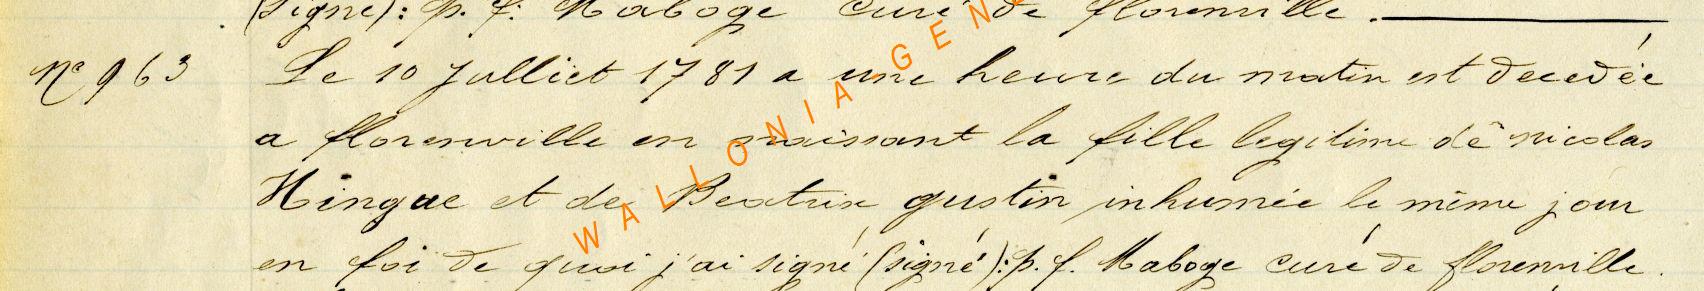 (Signé): p. f. Maboge Curé de florenville.
N° 963 Le 10 Julliet 1781 a une heure du matin est decedée
a florenville en naissant la fille legitime de nicolas
Hingue et de Beatrix gustin inhumée le même jour
en foi de quoi j'ai signé (signé): p. f. Maboge curé de florenville.
WALLONIA GEN